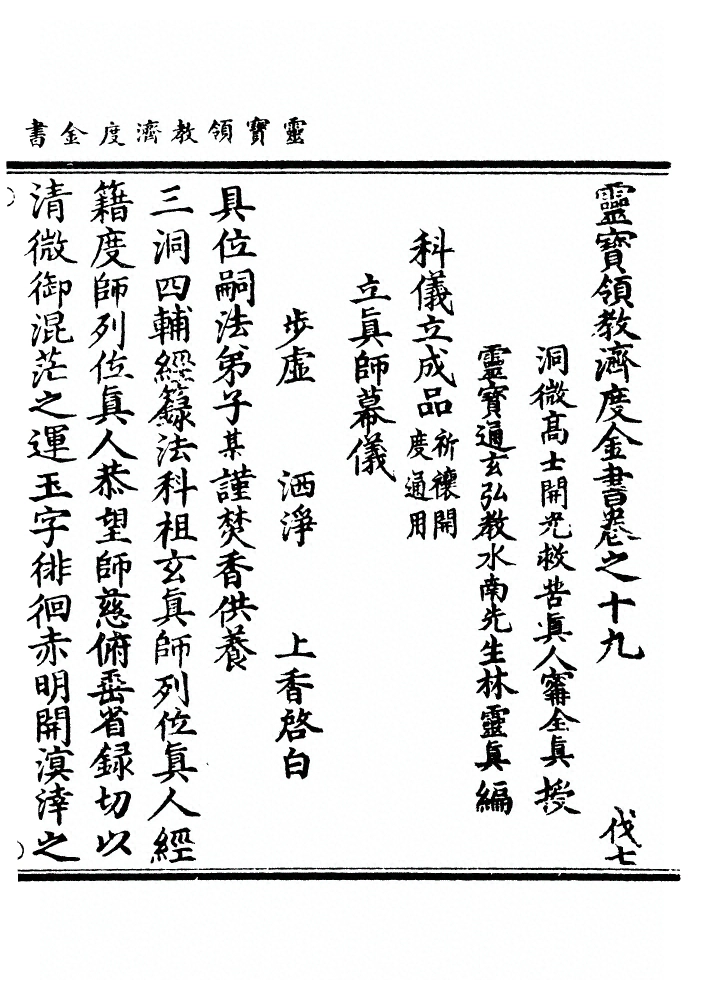 靈寶領教濟度金書
靈寶領教濟度金書卷之十九 伐七
洞微高士開光救苦眞人甯全眞授
靈寶通玄弘教水南先生林靈眞編
科儀立成品 祈禳開度通用
立眞師幕儀
步虛 洒淨 上香啓白
具位嗣法弟子某謹焚香供養
三洞四輔經籙法科祖玄眞師列位眞人經
籍度師列位眞人恭望師慈俯垂省録切以
清微御混茫之運玉字徘徊赤明開溟涬之